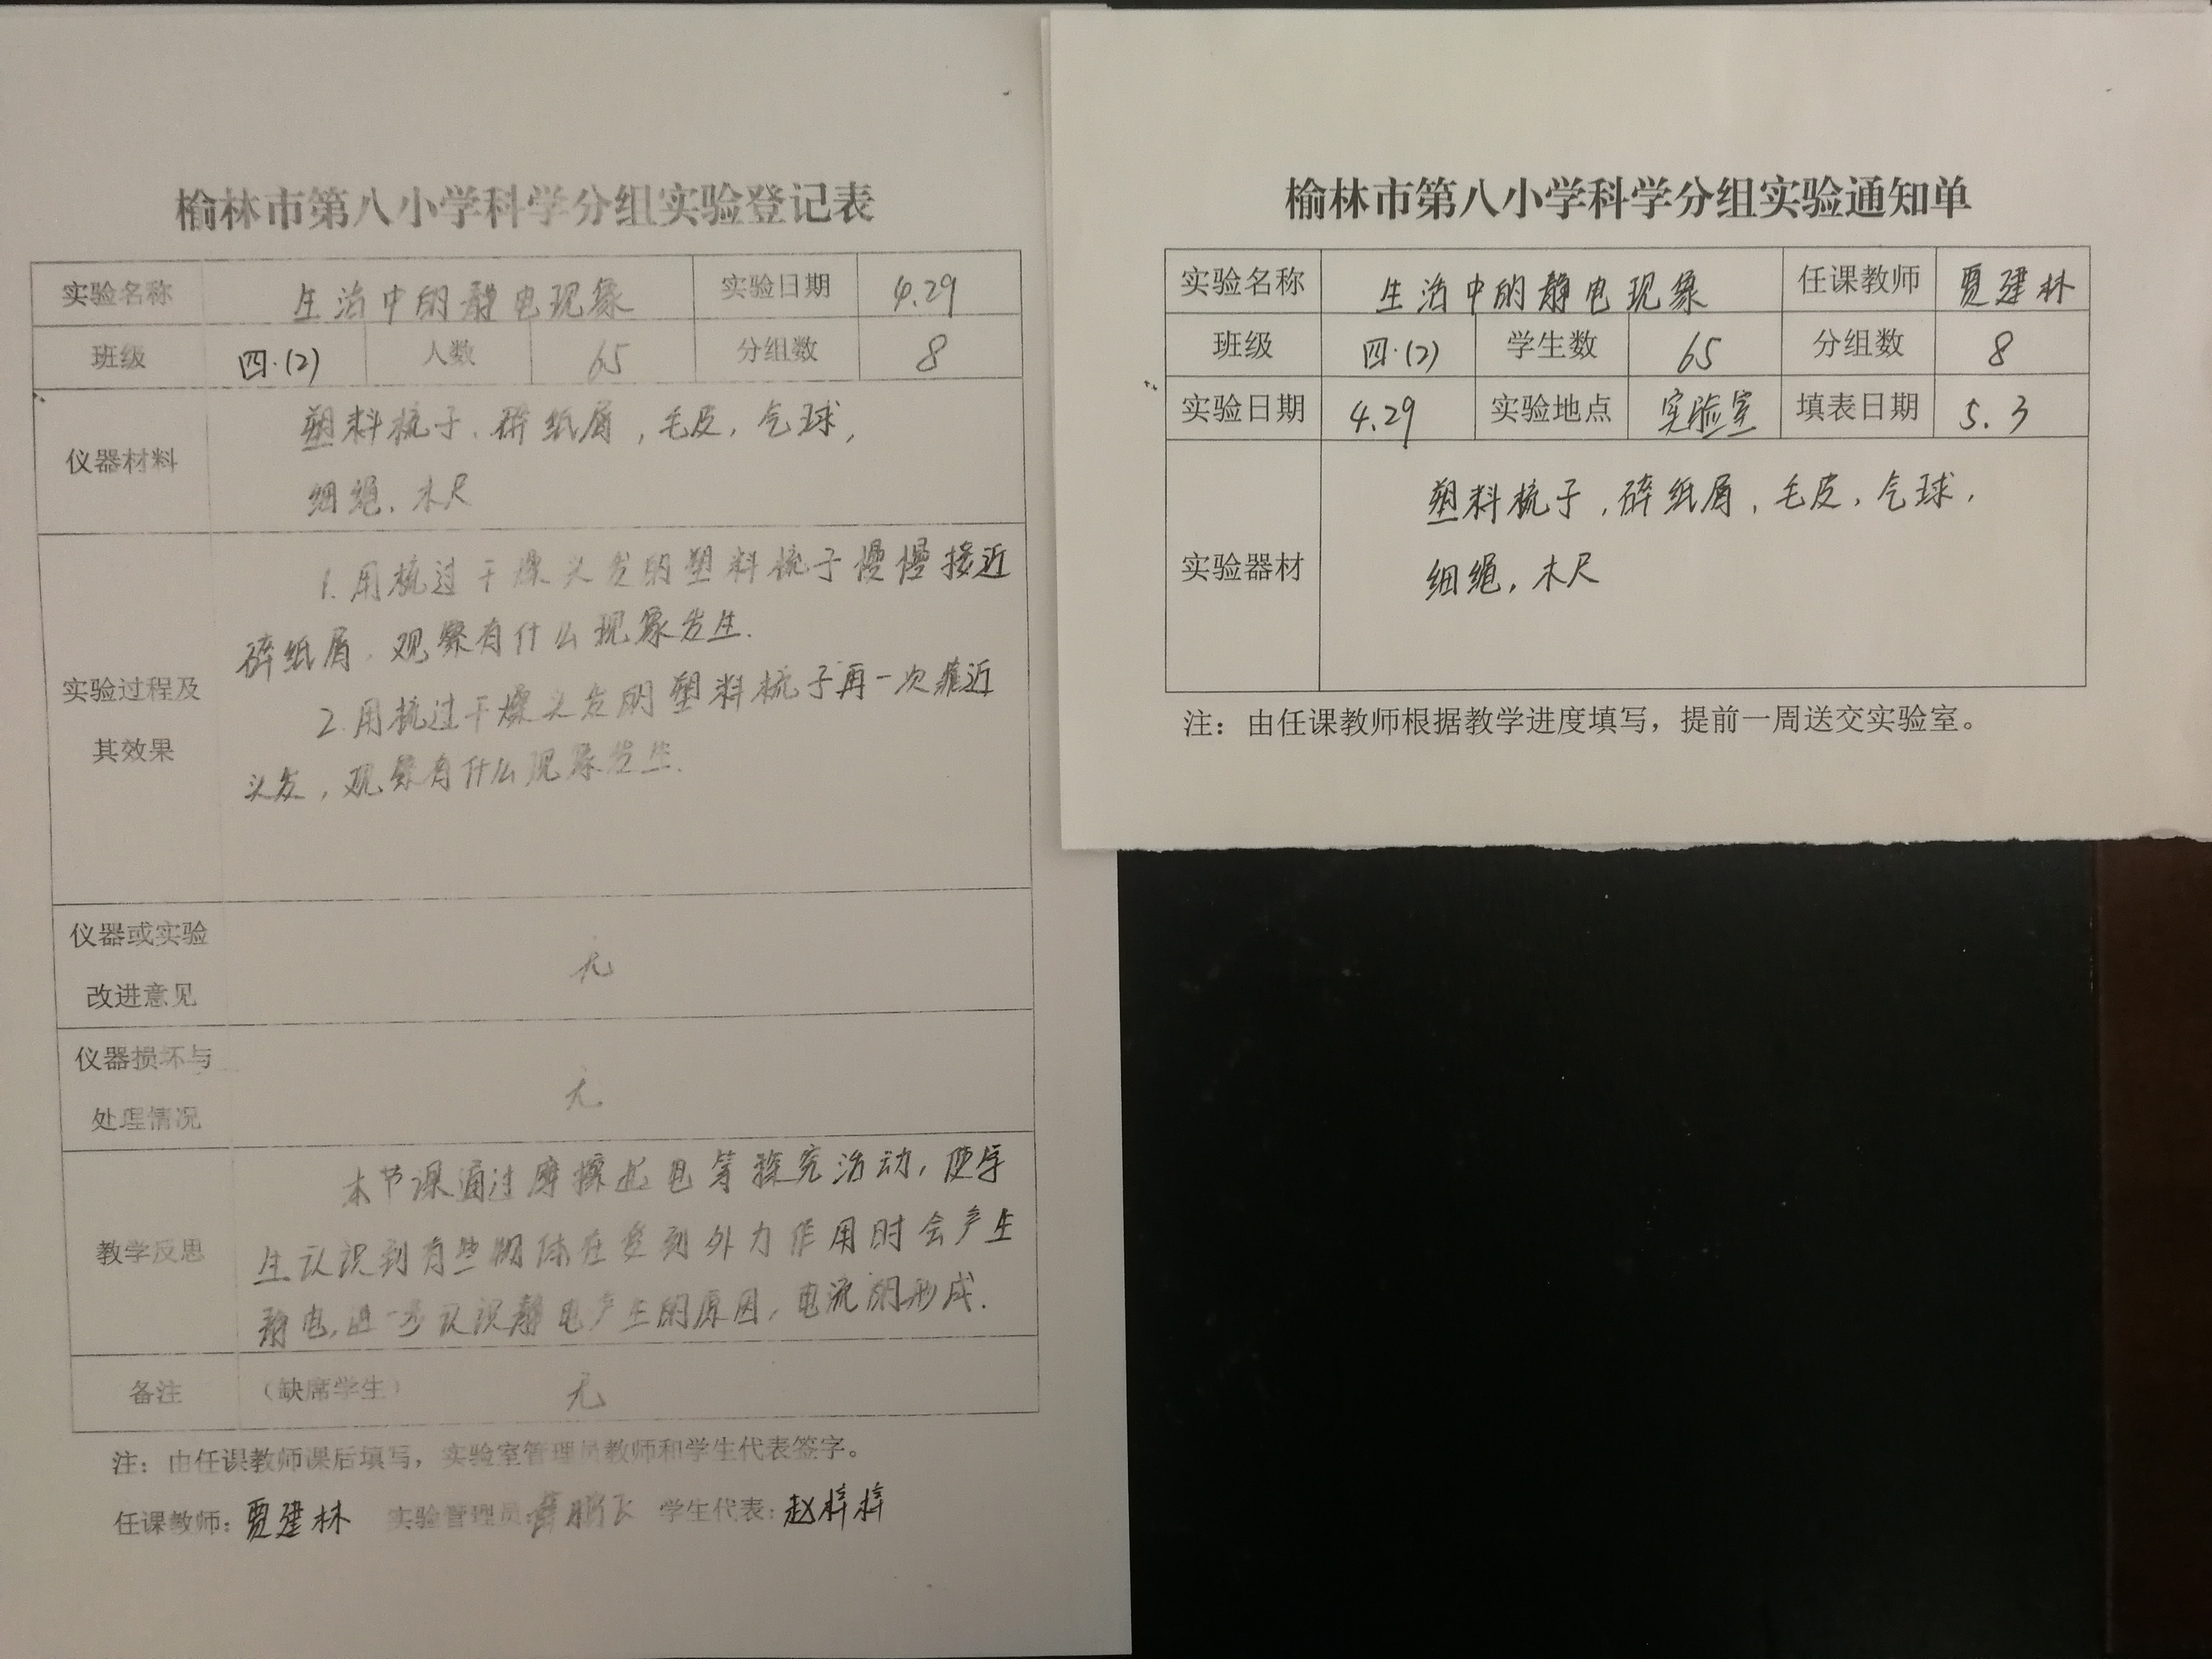 榆林市第八小学科学分组实验登记表
实验名称 生活中的静电现象 实验日期 4.29
班级 四·(2) 人数 65 分组数 8
仪器材料
塑料梳子、碎纸屑,毛皮,气球,
细绳,木尺
实验过程及
其效果
1.用梳过干燥头发的塑料梳子慢慢接近
碎纸屑,观察有什么现象发生.
2.用梳过干燥头发的塑料梳子再一次靠近
头发,观察有什么现象发生.
仪器或实验
改进意见
无
仪器损坏与
处理情况
无
教学反思
本节课通过摩擦起电等探究活动,使学
生认识到有些物体在受到外力作用时会产生
静电,进一步认识静电产生的原因,电流的形成.
备注 (缺席学生) 无
注:由任课教师课后填写,实验室管理员教师和学生代表签字。
任课教师:贾建林 实验管理员 鹏飞 学生代表:赵梓梓
榆林市第八小学科学分组实验通知单
实验名称 生活中的静电现象 任课教师 贾建林
班级 四·(2) 学生数 65 分组数 8
实验日期 4.29 实验地点 实验室 填表日期 5.3
实验器材
塑料梳子,碎纸屑,毛皮,气球,
细绳,木尺
注:由任课教师根据教学进度填写,提前一周送交实验室。